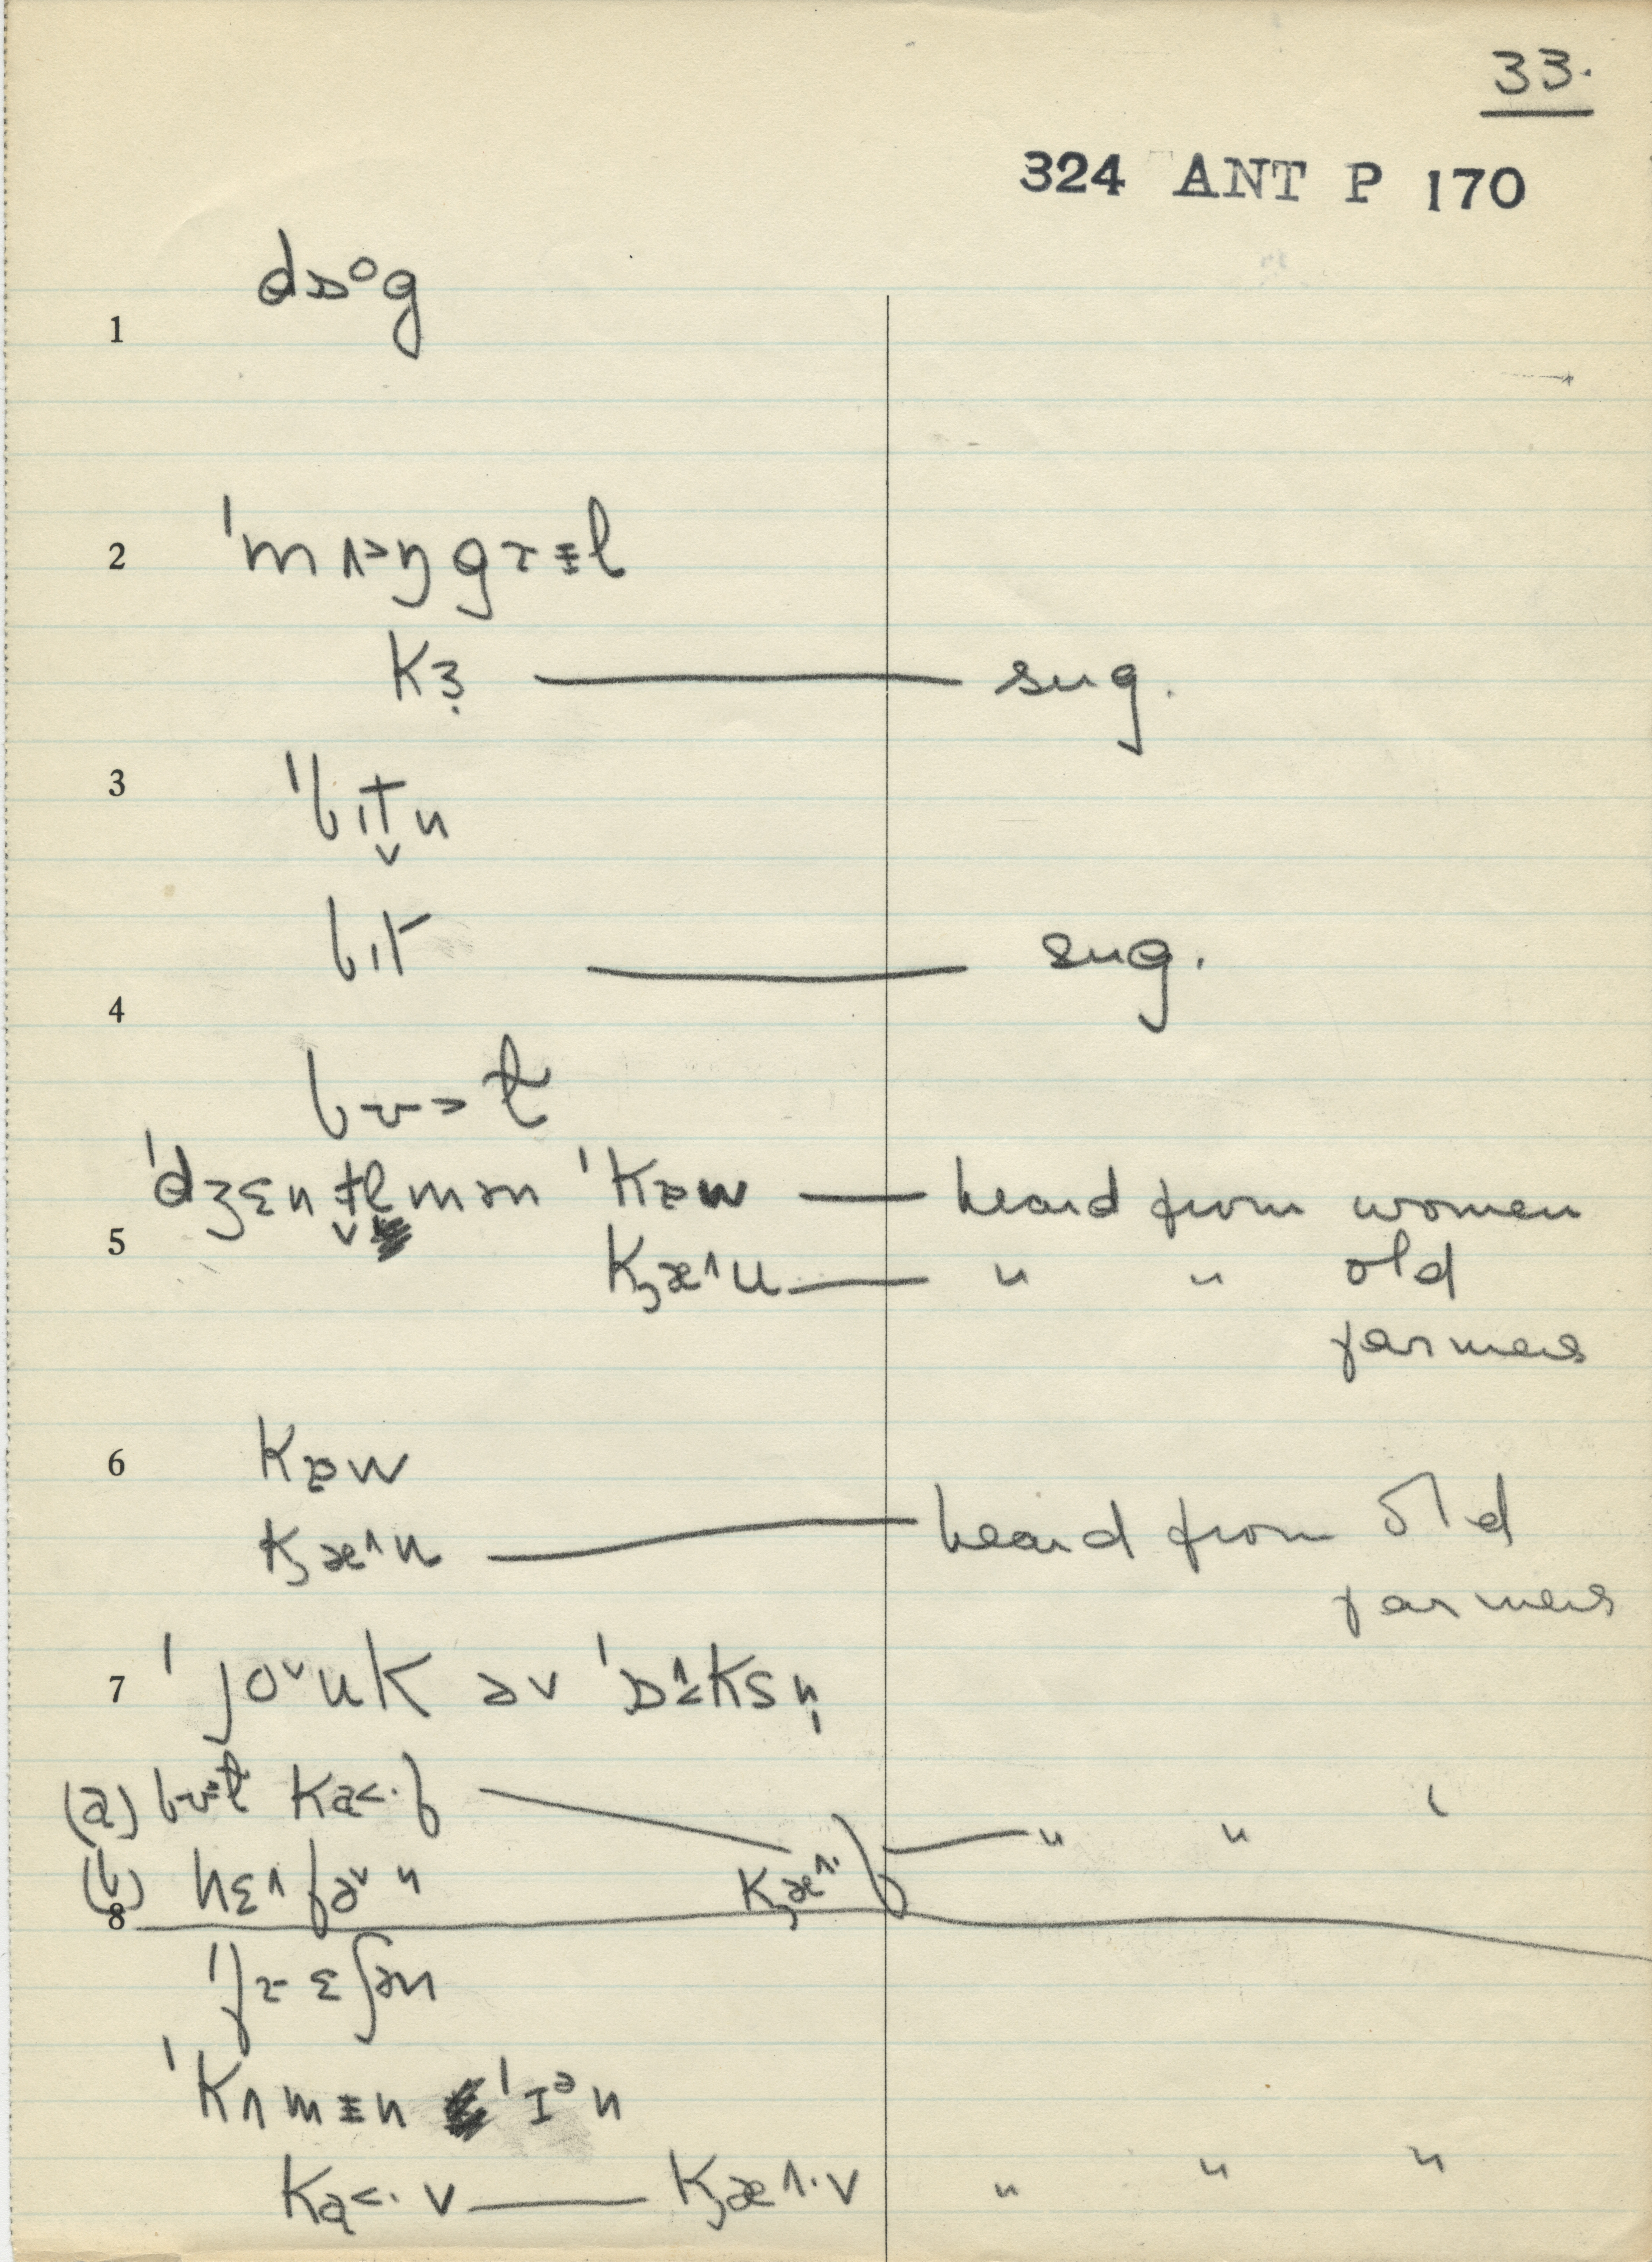 33.
324 ANT P 170
1 dɒᵒg
2 ˈmʌ˃ŋgrɨl
kɜ̣ — sug.
3 ˈbɪt̬n
bɪt — sug.
4
bʊ˃ɫ
5 ˈdʒɛnt̬ɫmən ˈkɐw — heard from women
kʒæ˄u — " " old
farmers
6 kɐw
kʒæ˄u — heard from old
farmers
7 ˈjo˅uk əv ˈɒ˄˂ksn̩
(a) bʊɫ ka˂·f — kʒæ˄·f — " "
(b) hɛ˄fə˅n
8
ˈfrɛʃən
ˈkʌmɨn ˈɪᵊn
ka˂·v — kʒæ˄·v " " "